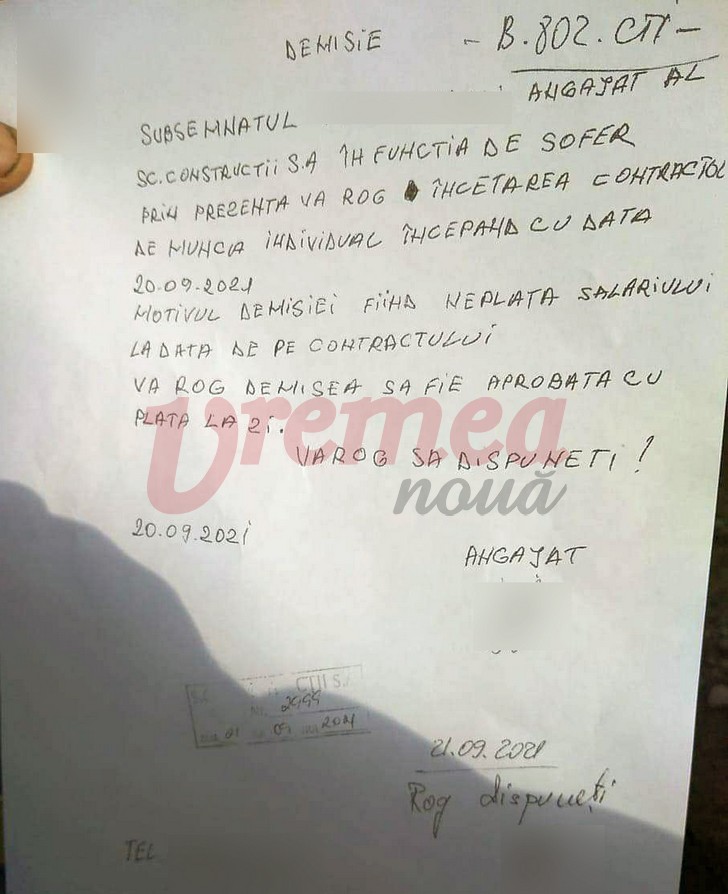 DEMISIE
- B.802.CTI -
SUBSEMNATUL ANGAJAT AL
SC.CONSTRUCTII S.A ÎN FUNCTIA DE SOFER
PRIN PREZENTA VA ROG ÎNCETAREA CONTRACTUL
DE MUNCIA INDIVIDUAL ÎNCEPAND CU DATA
20.09.2021
MOTIVUL DEMISIEI FIIND NEPLATA SALARIULUI
LA DATA DE PE CONTRACTULUI
VA ROG DEMISEA SA FIE APROBATA CU
PLATA LA ZI.
Vremea
nouă
VA ROG SA DISPUNETI !
20.09.2021
ANGAJAT
CȚII S.A
2021
21.09.2021
Rog dispuneți
TEL